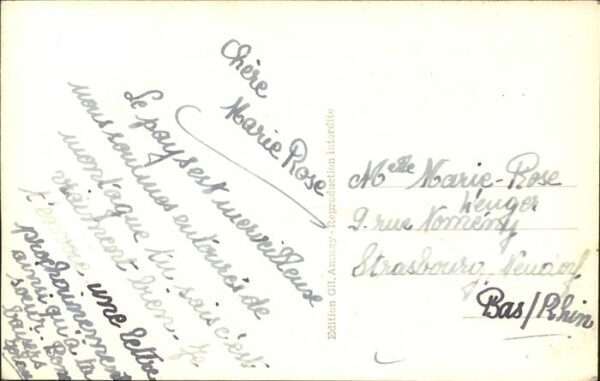 Chère
Marie Rose
Le pays est merveilleuse
nous soulmos entourés de
montague tu sais c'est
vraiment bien. je
t'enverrai une lettre
prochainement
ainsi qu'à ta
sœur. Bons
baisers
Edition Gil, Annecy - Reproduction interdite
Mlle Marie-Rose
Wenger
9. rue Nomény
Strasbourg Neudorf
Bas/Rhin